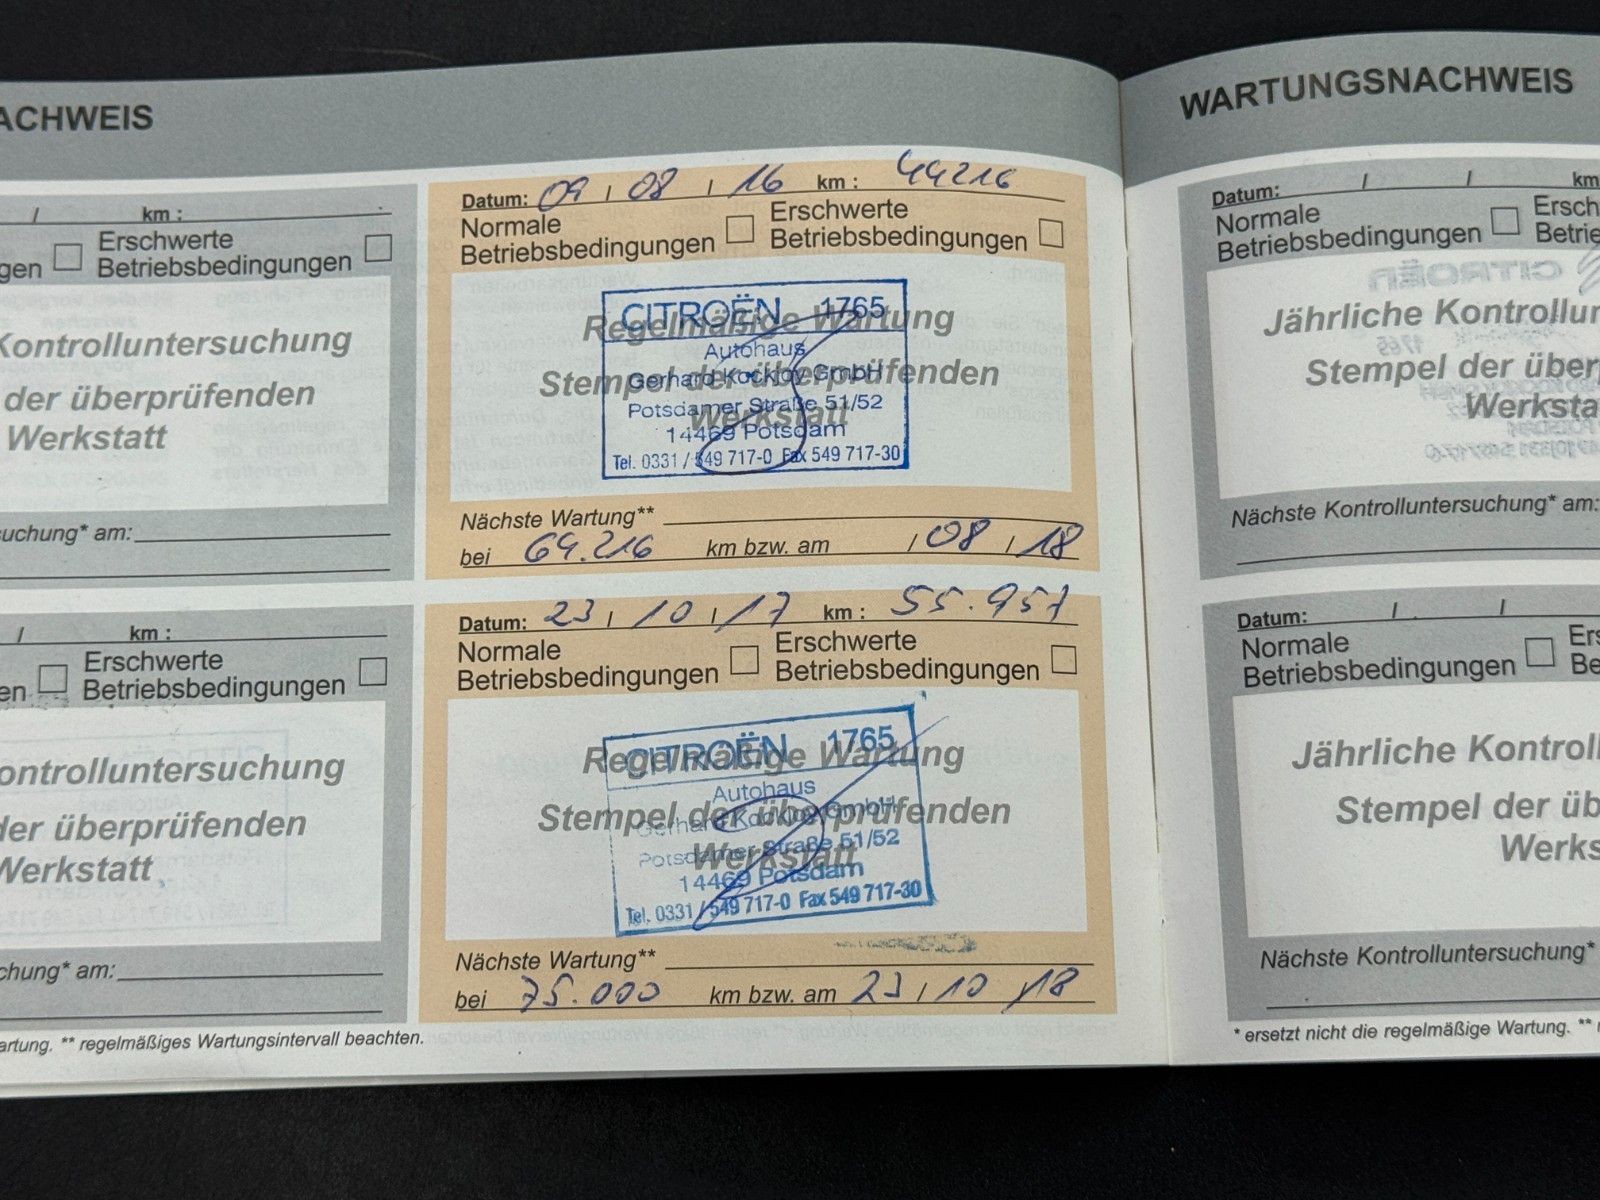 ACHWEIS
/ km :
gen Erschwerte
Betriebsbedingungen
Kontrolluntersuchung
der überprüfenden
Werkstatt
suchung* am:
/ km :
en Erschwerte
Betriebsbedingungen
ontrolluntersuchung
der überprüfenden
Werkstatt
chung* am:
artung. ** regelmäßiges Wartungsintervall beachten.
Datum: 09 / 08 / 16 km : 44216
Normale
Betriebsbedingungen
Erschwerte
Betriebsbedingungen
Regelmäßige Wartung
Stempel der überprüfenden
Werkstatt
CITROËN 1765
Autohaus
Gerhard GmbH
Potsdamer Straße 51/52
14469 Potsdam
Tel. 0331 / 549 717-0 Fax 549 717-30
Nächste Wartung**
bei 64.216 km bzw. am / 08 / 18
Datum: 23 / 10 / 17 km : 55.957
Normale
Betriebsbedingungen
Erschwerte
Betriebsbedingungen
Regelmäßige Wartung
Stempel der überprüfenden
Werkstatt
CITROËN 1765
Autohaus
Gerhard GmbH
Potsdamer Straße 51/52
14469 Potsdam
Tel. 0331 / 549 717-0 Fax 549 717-30
Nächste Wartung**
bei 75.000 km bzw. am 23 / 10 / 18
WARTUNGSNACHWEIS
Datum: / / km
Normale
Betriebsbedingungen
Ersch
Betrie
Jährliche Kontrollun
Stempel der über
Werksta
Nächste Kontrolluntersuchung* am:
Datum: / /
Normale
Betriebsbedingungen
Ers
Be
Jährliche Kontroll
Stempel der üb
Werks
Nächste Kontrolluntersuchung*
* ersetzt nicht die regelmäßige Wartung. **